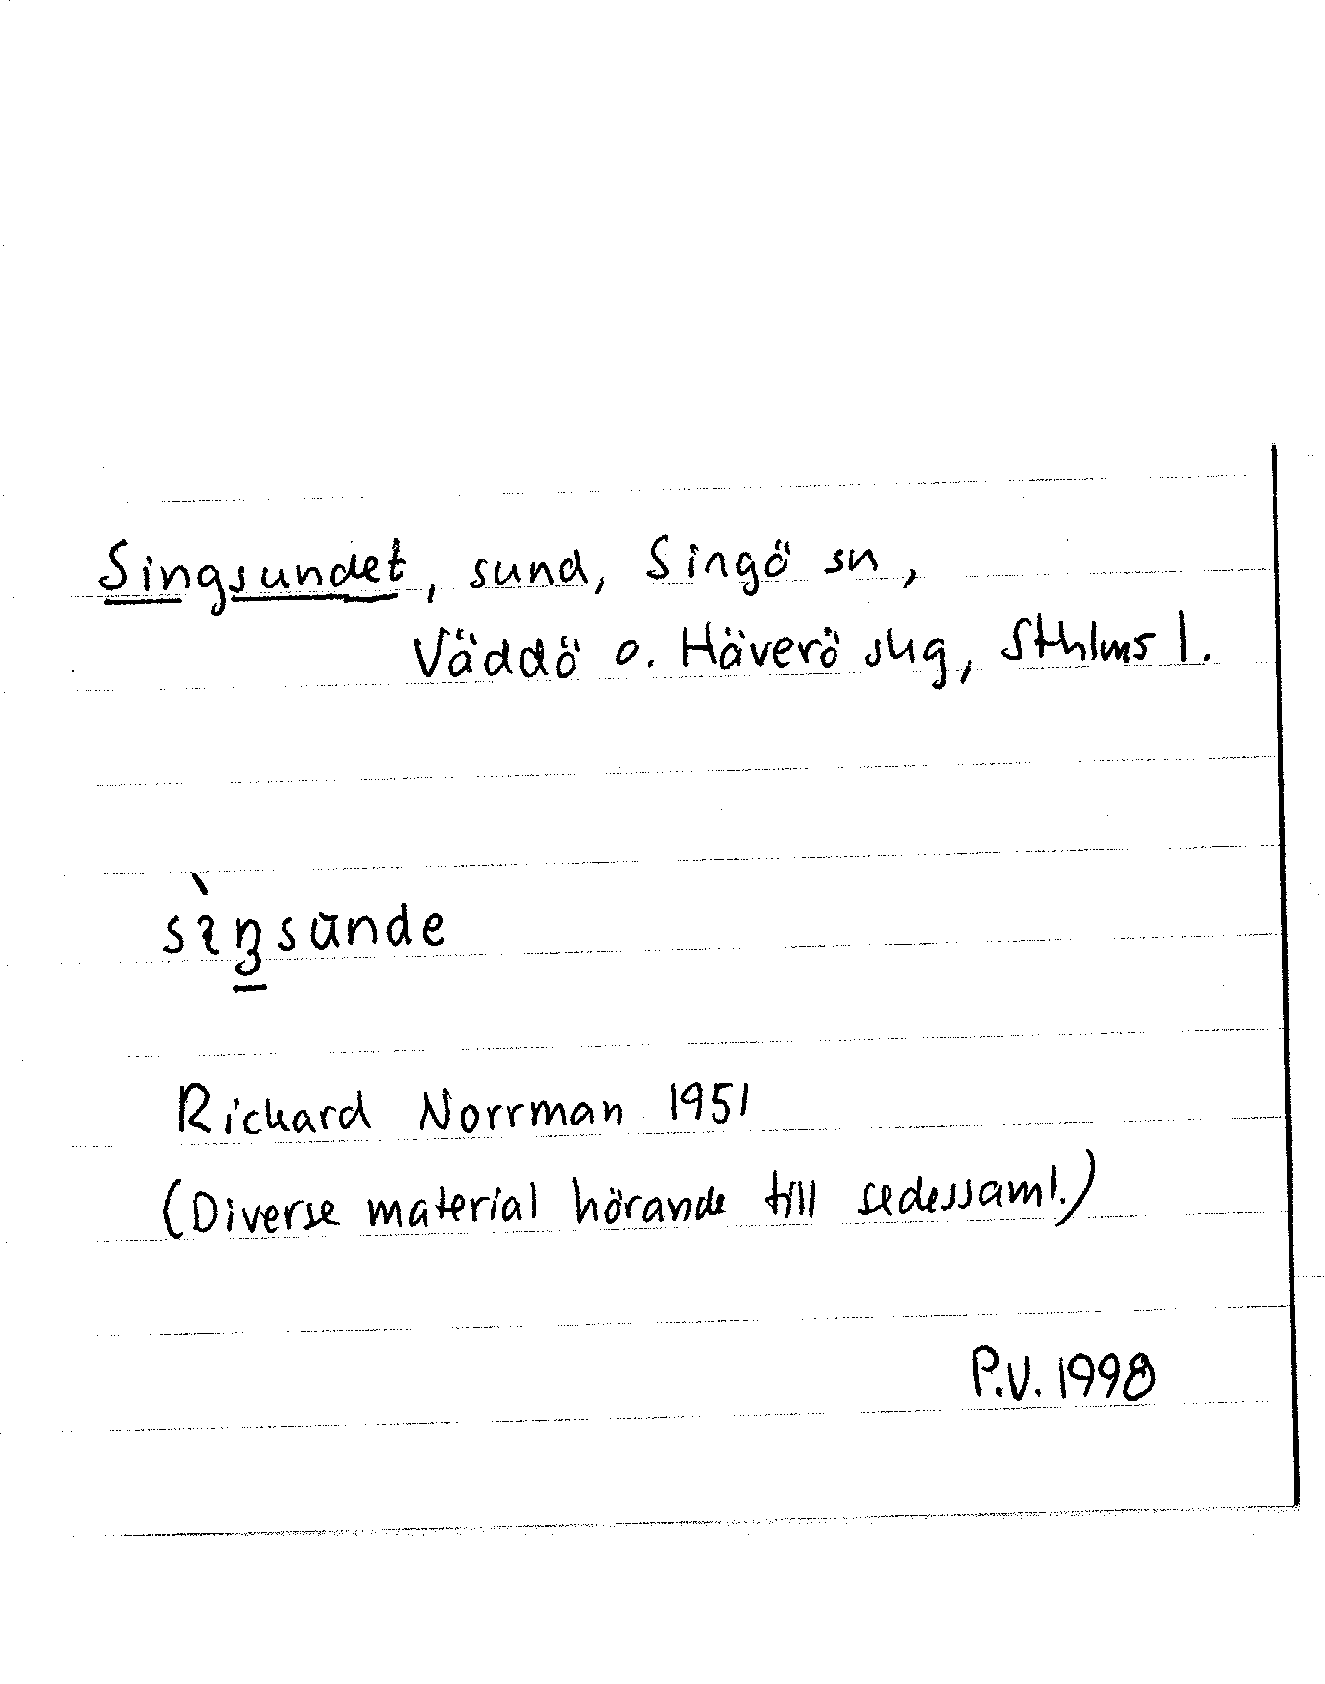 Singsundet, sund, Singö sn,
Väddö o. Häverö skg, Sthlms l.
sìŋsunde
Richard Norrman 1951
(Diverse material hörande till sedessaml.)
P.V. 1998